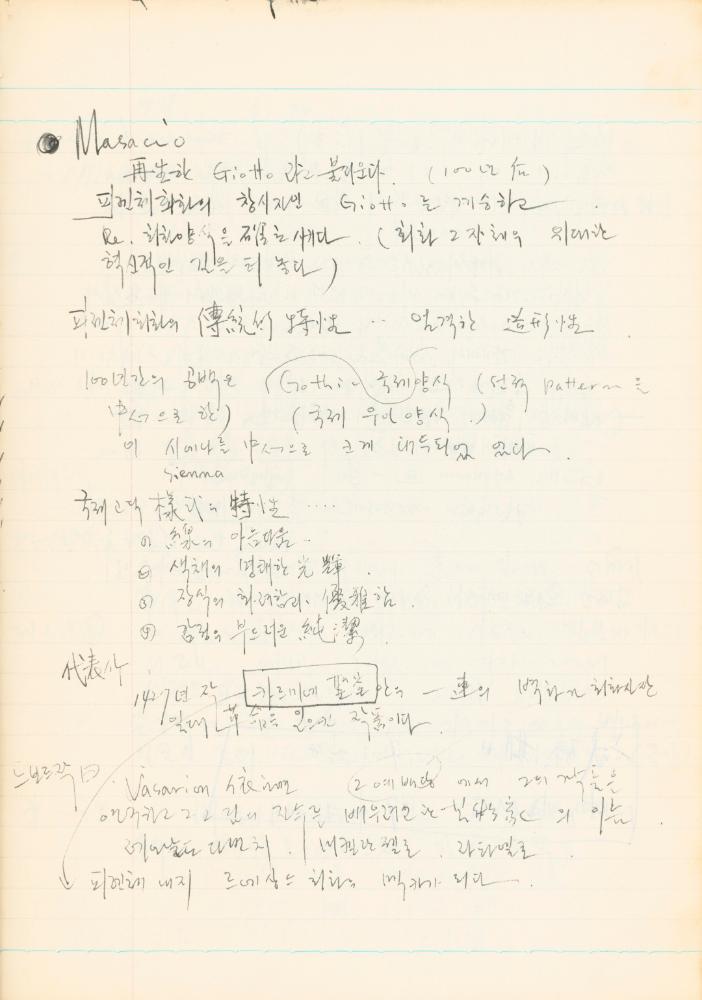 Masacio
再生한 Giotto 라고 불리운다. (100년 后)
피렌체회화의 창시자인 Giotto를 계승하고
Re. 회화양식을 시켰다. (회화 그 자체의 위대한
혁신적인 길을 터 놓다)
피렌체회화의 傳統的 特性 .. 엄격한 造形性
100년간의 공백은 (Gothic 국제양식 (선적 pattern을
中心으로 한) (국제 우아양식.)
이 시에나를 中心으로 크게 대두되었었다.
Sienna
국제고딕 樣式의 特性 ....
① 線의 아름다움.
② 색채의 명쾌한 光輝.
③ 장식의 화려함과 優雅함.
④ 감정의 부드러운 純潔.
代表作
1427년 작 카르미네 聖堂 안의 一連의 벽화가 회화사상
일대 革命을 일으킨 작품이다.
Vasari에 依하면 (그 예배당에서 그의 작품을
연구하고 그 그림의 진수를 배우려고 한 의 이름
레오날드 다빈치. 미켈란젤로. 라파엘로.
피렌체 내지 르네상스 회화의 메카가 되다.